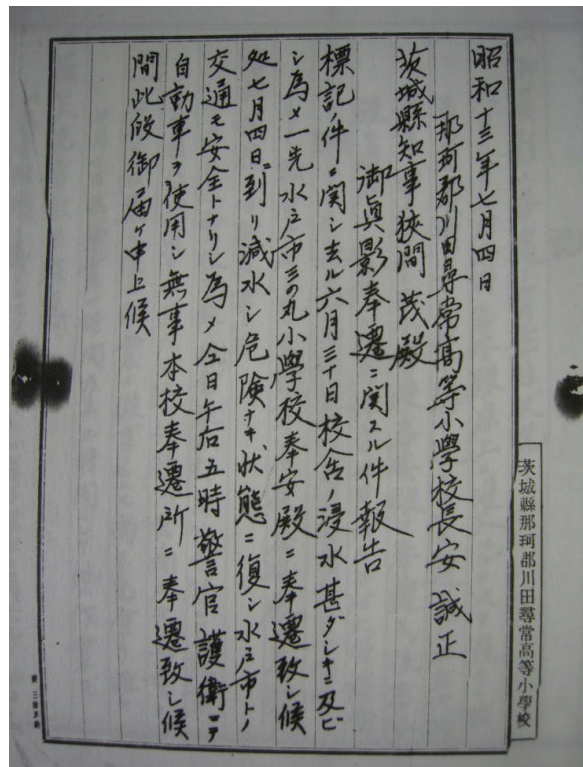 昭和十三年七月四日
那珂郡川田尋常高等小學校長安 誠正
茨城縣知事狹間 茂殿
御眞影奉遷ニ関スル件報告
標記ノ件ニ関シ去ル六月三十日校舎ノ浸水甚ダシキニ及ビ
シ為メ一先水戸市三の丸小學校奉安殿ニ奉遷致シ候
処七月四日ニ到リ減水シ危険ナキ状態ニ復シ水戸市トノ
交通モ安全トナリシ為メ仝日午后五時警官護衛ニテ
自動車ヲ使用シ無事本校奉遷所ニ奉遷致シ候
間此段御届ケ申上候
茨城縣那珂郡川田尋常高等小學校